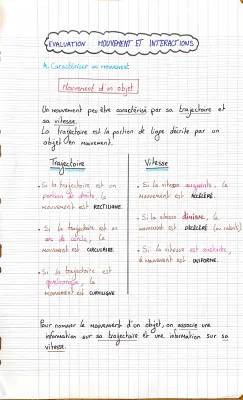 EVALUATION MOUVEMENT ET INTERACTIONS
A. Caractériser un mouvement
Mouvement d'un objet
Un mouvement peut être caractérisé par sa trajectoire et
sa vitesse.
La trajectoire est la portion de ligne décrite par un
objet en mouvement.
Trajectoire
• Si la trajectoire est un
portion de droite, le
mouvement est RECTILIGNE.
• Si la trajectoire est un
arc de cercle, le
mouvement est CIRCULAIRE.
• Si la trajectoire est
quelconque, le
mouvement est CURVILIGNE
Vitesse
• Si la vitesse augmente, le
mouvement est ACCÉLÉRÉ.
• Si la vitesse diminue, le
mouvement est DÉCÉLÉRÉ (ou ralenti)
• Si la vitesse est constante,
le mouvement est UNIFORME.
Pour nommer le mouvement d'un objet, on associe une
information sur sa trajectoire et une information sur sa
vitesse.